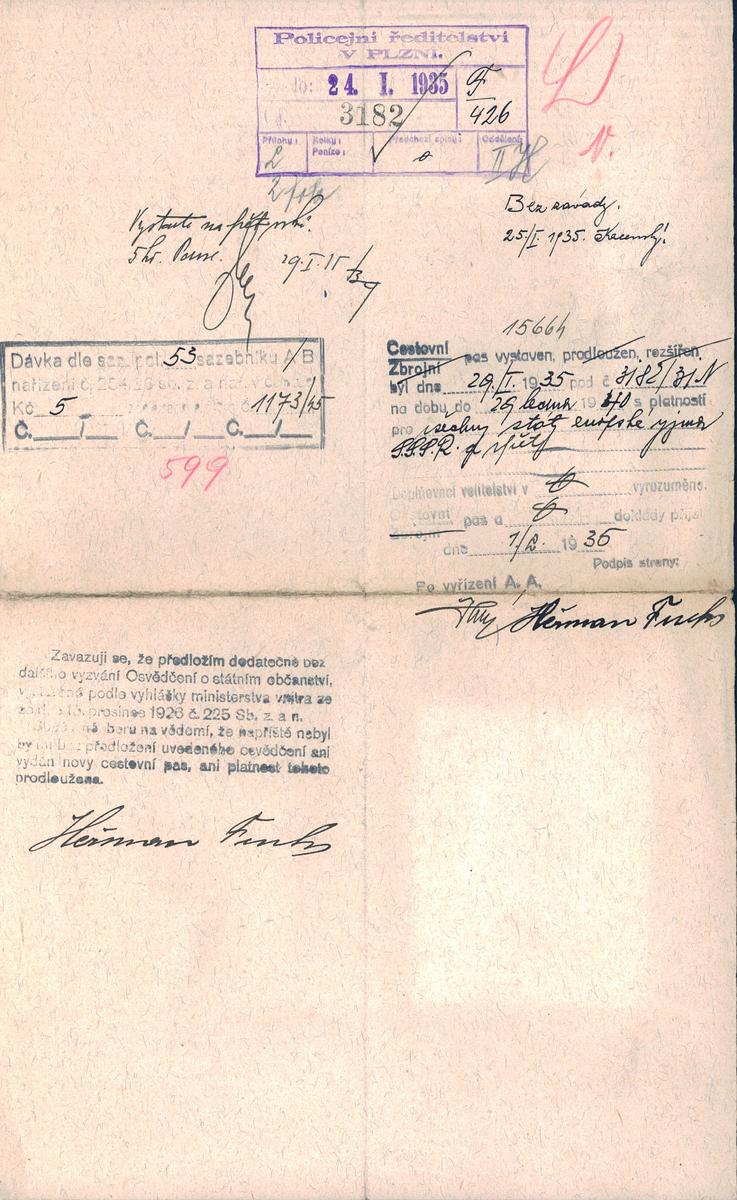 Policejní ředitelství
V PLZNI.
24. I. 1935
3182
F
426
Přílohy:
Kolky:
Peníze:
Předchozí spisy:
Oddělení:
2
0
II
N.
Bez závady.
25/I. 1935.
Vystavte na pět
29. I.
15664
Dávka dle saz. pol. 53 sazebníku A/B
Kč 5 1173/35
Č. / Č. / Č. /
599
Cestovní
Zbrojní pas vystaven, prodloužen, rozšířen
byl dne 29. I. 1935 pod č 3182/31 N
na dobu do 29 ledna 1940 s platností
pro všechny státy evropské vyjma
S.S.S.R.
Doplňovací velitelství v vyrozuměno.
Cestovní
Zbrojní pas a doklady přijal
dne 1/2. 1935
Podpis strany:
Po vyřízení A. A.
Heřman Fuchs
Zavazuji se, že předložím dodatečně bez
dalšího vyzvání Osvědčení o státním občanství,
podle vyhlášky ministerstva vnitra ze
prosince 1926 č. 225 Sb. z. a n.
beru na vědomí, že napříště nebyl
by mi bez předložení uvedeného osvědčení ani
vydán nový cestovní pas, ani platnost tohoto
prodloužena.
Heřman Fuchs